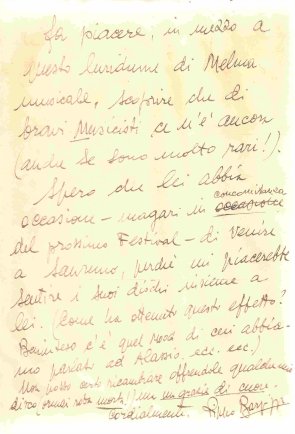 Fa piacere, in mezzo a
questo luridume di Melma
musicale, scoprire che di
bravi Musicisti ce n'è ancora
(anche se sono molto rari!).
Spero che lei abbia
occasione - magari in concomitanza
del prossimo Festival - di venire
a Sanremo, perché mi piacerebbe
sentire i suoi dischi insieme a
lei. (Come ha ottenuto questo effetto?
c'è quel Mood di cui abbia-
mo parlato ad Alassio, ecc. ecc.)
Non posso certo ricambiare offrendole qualche mio
disco, ormai roba morta! ma un grazie di cuore.
Cordialmente.